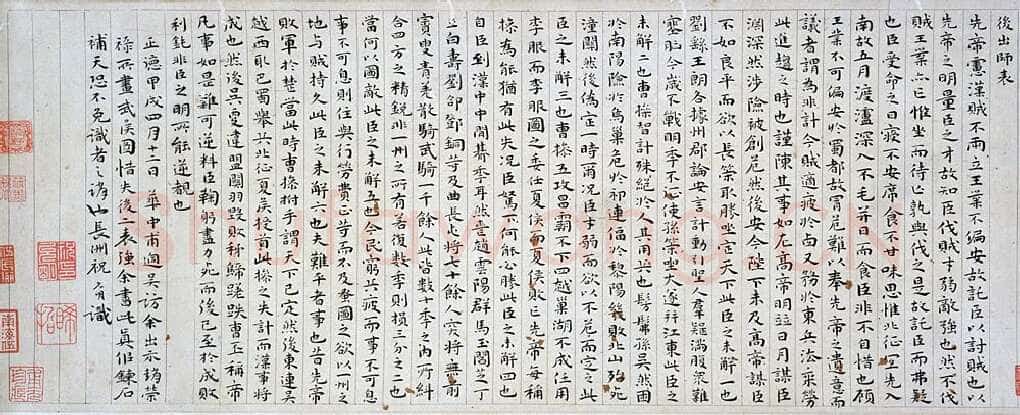 後出師表
先帝慮漢賊不兩立王業不偏安故託臣以討賊也以
先帝之明量臣之才故知臣伐賊才弱敵強也然不伐
賊王業亦亡惟坐而待亡孰與伐之是故託臣而弗疑
也臣受命之日寢不安席食不甘味思惟北征宜先入
南故五月渡瀘深入不毛并日而食臣非不自惜也顧
王業不可偏安於蜀都故冒危難以奉先帝之遺意而
議者謂為非計今賊適疲於西又務於東兵法乘勞
此進趨之時也謹陳其事如左高帝明並日月謀臣
淵深然涉險被創危然後安今陛下未及高帝謀臣
不如良平而欲以長策取勝坐定天下此臣之未解一也
劉繇王朗各據州郡論安言計動引聖人群疑滿腹眾難
塞胸今歲不戰明年不征使孫策坐大遂并江東此臣之
未解二也曹操智計殊絕於人其用兵也髣髴孫吳然困
於南陽險於烏巢危於祁連偪於黎陽幾敗北山殆死
潼關然後偽定一時爾況臣才弱而欲以不危而定之此
臣之未解三也曹操五攻昌霸不下四越巢湖不成任用
李服而李服圖之委任夏侯而夏侯敗亡先帝每稱
操為能猶有此失況臣駑下何能必勝此臣之未解四也
自臣到漢中中間朞年耳然喪趙雲陽群馬玉閻芝丁
立白壽劉郃鄧銅等及曲長屯將七十餘人突將無前
賨叟青羌散騎武騎一千餘人此皆數十年之內所糾
合四方之精銳非一州之所有若復數年則損三分之二也
當何以圖敵此臣之未解五也今民窮兵疲而事不可息
事不可息則住與行勞費正等而不及蚤圖之欲以一州之
地与賊持久此臣之未解六也夫難平者事也昔先帝
敗軍於楚當此時曹操拊手謂天下已定然後東連吳
越西取巴蜀舉兵北征夏侯授首此操之失計而漢事將
成也然後吳更違盟關羽毀敗秭歸蹉跌曹丕稱帝
凡事如是難可逆料臣鞠躬盡力死而後已至於成敗
利鈍非臣之明所能逆覩也
正德甲戌四月十二日華中甫過吳訪余出示趙榮
祿所畫武侯圖惜失後一表強余書此真俗鍊石
補天恐不免識者之誚也長洲祝允明識